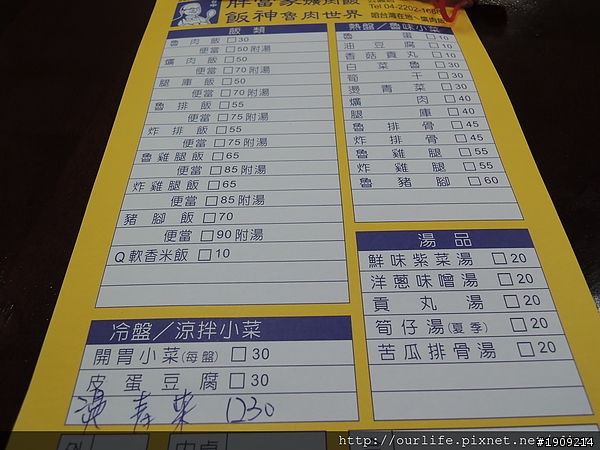 胖當家爌肉飯
飯神魯肉世界
Tel 04-2202-1668
飯類
魯肉飯□30
便當□50附湯
爌肉飯□50
便當□70附湯
腿庫飯□50
便當□70附湯
魯排飯□55
便當□75附湯
炸排飯□55
便當□75附湯
魯雞腿飯□65
便當□85附湯
炸雞腿飯□65
便當□85附湯
豬腳飯□70
便當□90附湯
Q軟香米飯□10
冷盤／涼拌小菜
開胃小菜(每盤)□30
皮蛋豆腐□30
燙青菜 30
熱盤／魯味小菜
魯蛋□10
油豆腐□10
香菇貢丸□10
白菜魯□30
筍干□30
燙青菜□30
爌肉□40
腿庫□40
魯排骨□45
炸排骨□45
魯雞腿□55
炸雞腿□55
魯豬腳□60
湯品
鮮味紫菜湯□20
洋蔥味噌湯□20
貢丸湯□20
筍仔湯(夏季)□20
苦瓜排骨湯□20
http://ourlife.pixnet.net/blog
#1909214